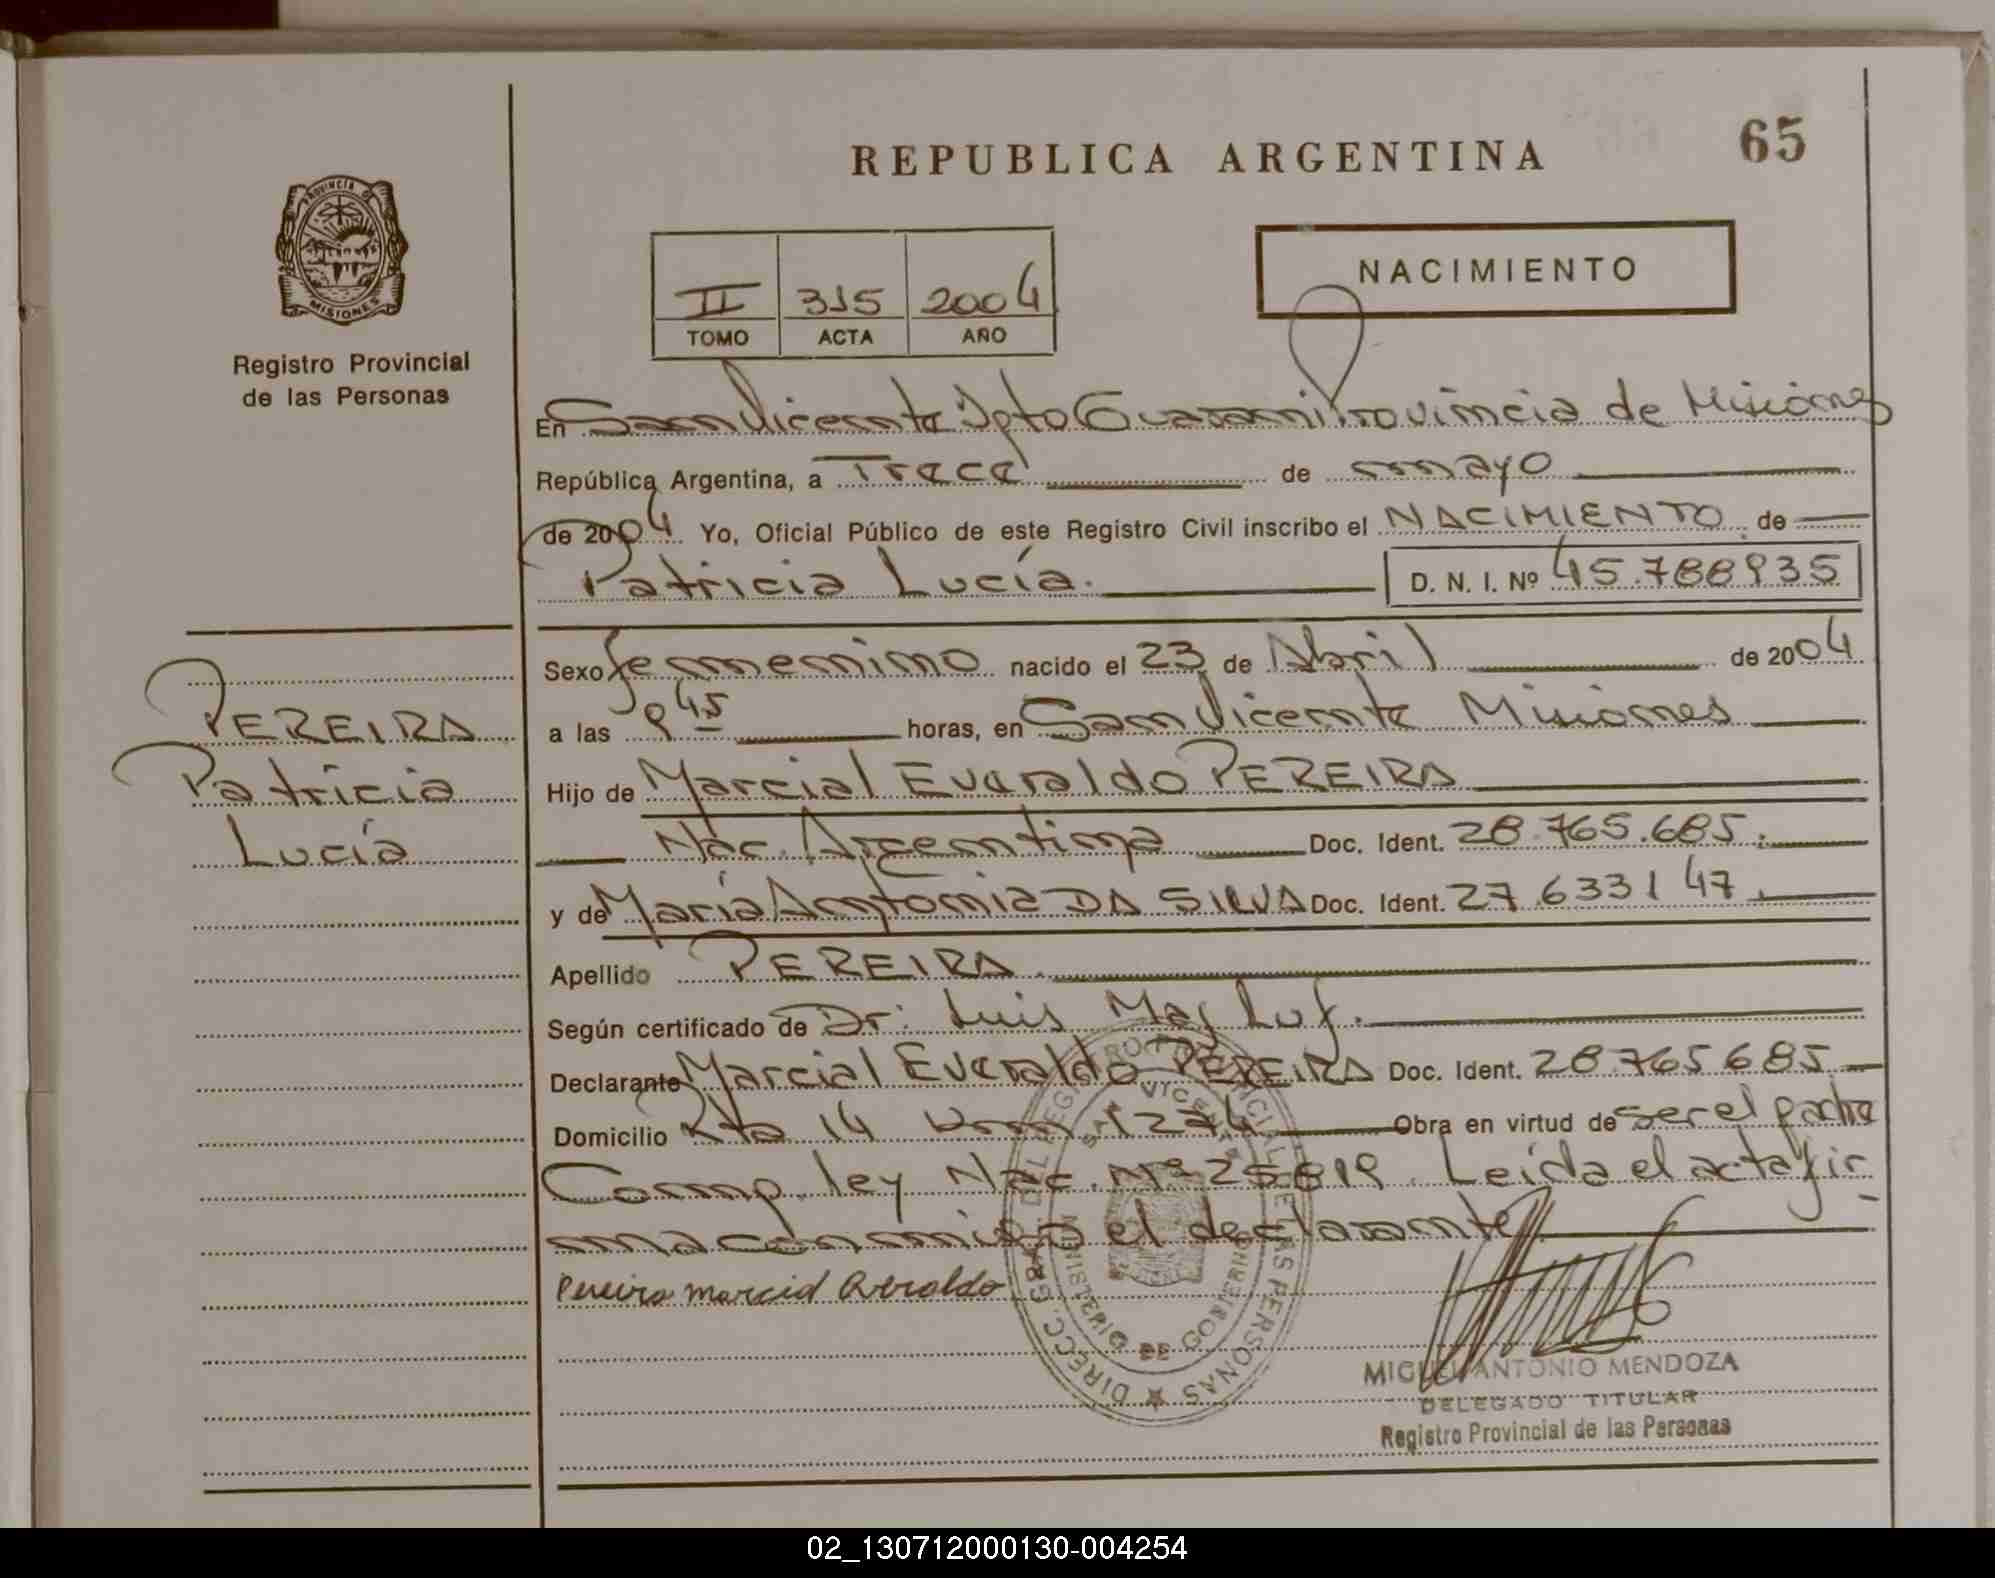 65
REPUBLICA ARGENTINA
PROVINCIA DE
MISIONES
Registro Provincial
de las Personas
NACIMIENTO
II 315 2004
TOMO ACTA AÑO
En San Vicente Dpto Guaraní Provincia de Misiones
República Argentina, a Trece de mayo
de 2004 Yo, Oficial Público de este Registro Civil inscribo el NACIMIENTO de
Patricia Lucía. D. N. I. Nº 45.788935
Sexo femenino nacido el 23 de Abril de 2004
a las 9 45 horas, en San Vicente Misiones
Hijo de Marcial Everaldo PEREIRA
Nac. Argentina Doc. Ident. 28.765.685.
y de María Antonia DA SILVA Doc. Ident. 27.633147.
Apellido PEREIRA
Según certificado de Dr: Luis
Declarante Marcial Everaldo PEREIRA Doc. Ident. 28.765685
Domicilio Rta 14 Km 1274 Obra en virtud de ser el padre
Comp. ley Nac. Nº 25819. Leída el acta fir
ma conmigo el declarante
Pereira Marcial Everaldo
PEREIRA
Patricia
Lucía
DIRECC. GRAL DEL REGISTRO PROVINCIAL DE LAS PERSONAS
SAN VICENTE
MINISTERIO DE GOBIERNO
MIGUEL ANTONIO MENDOZA
DELEGADO TITULAR
Registro Provincial de las Personas
02_130712000130-004254